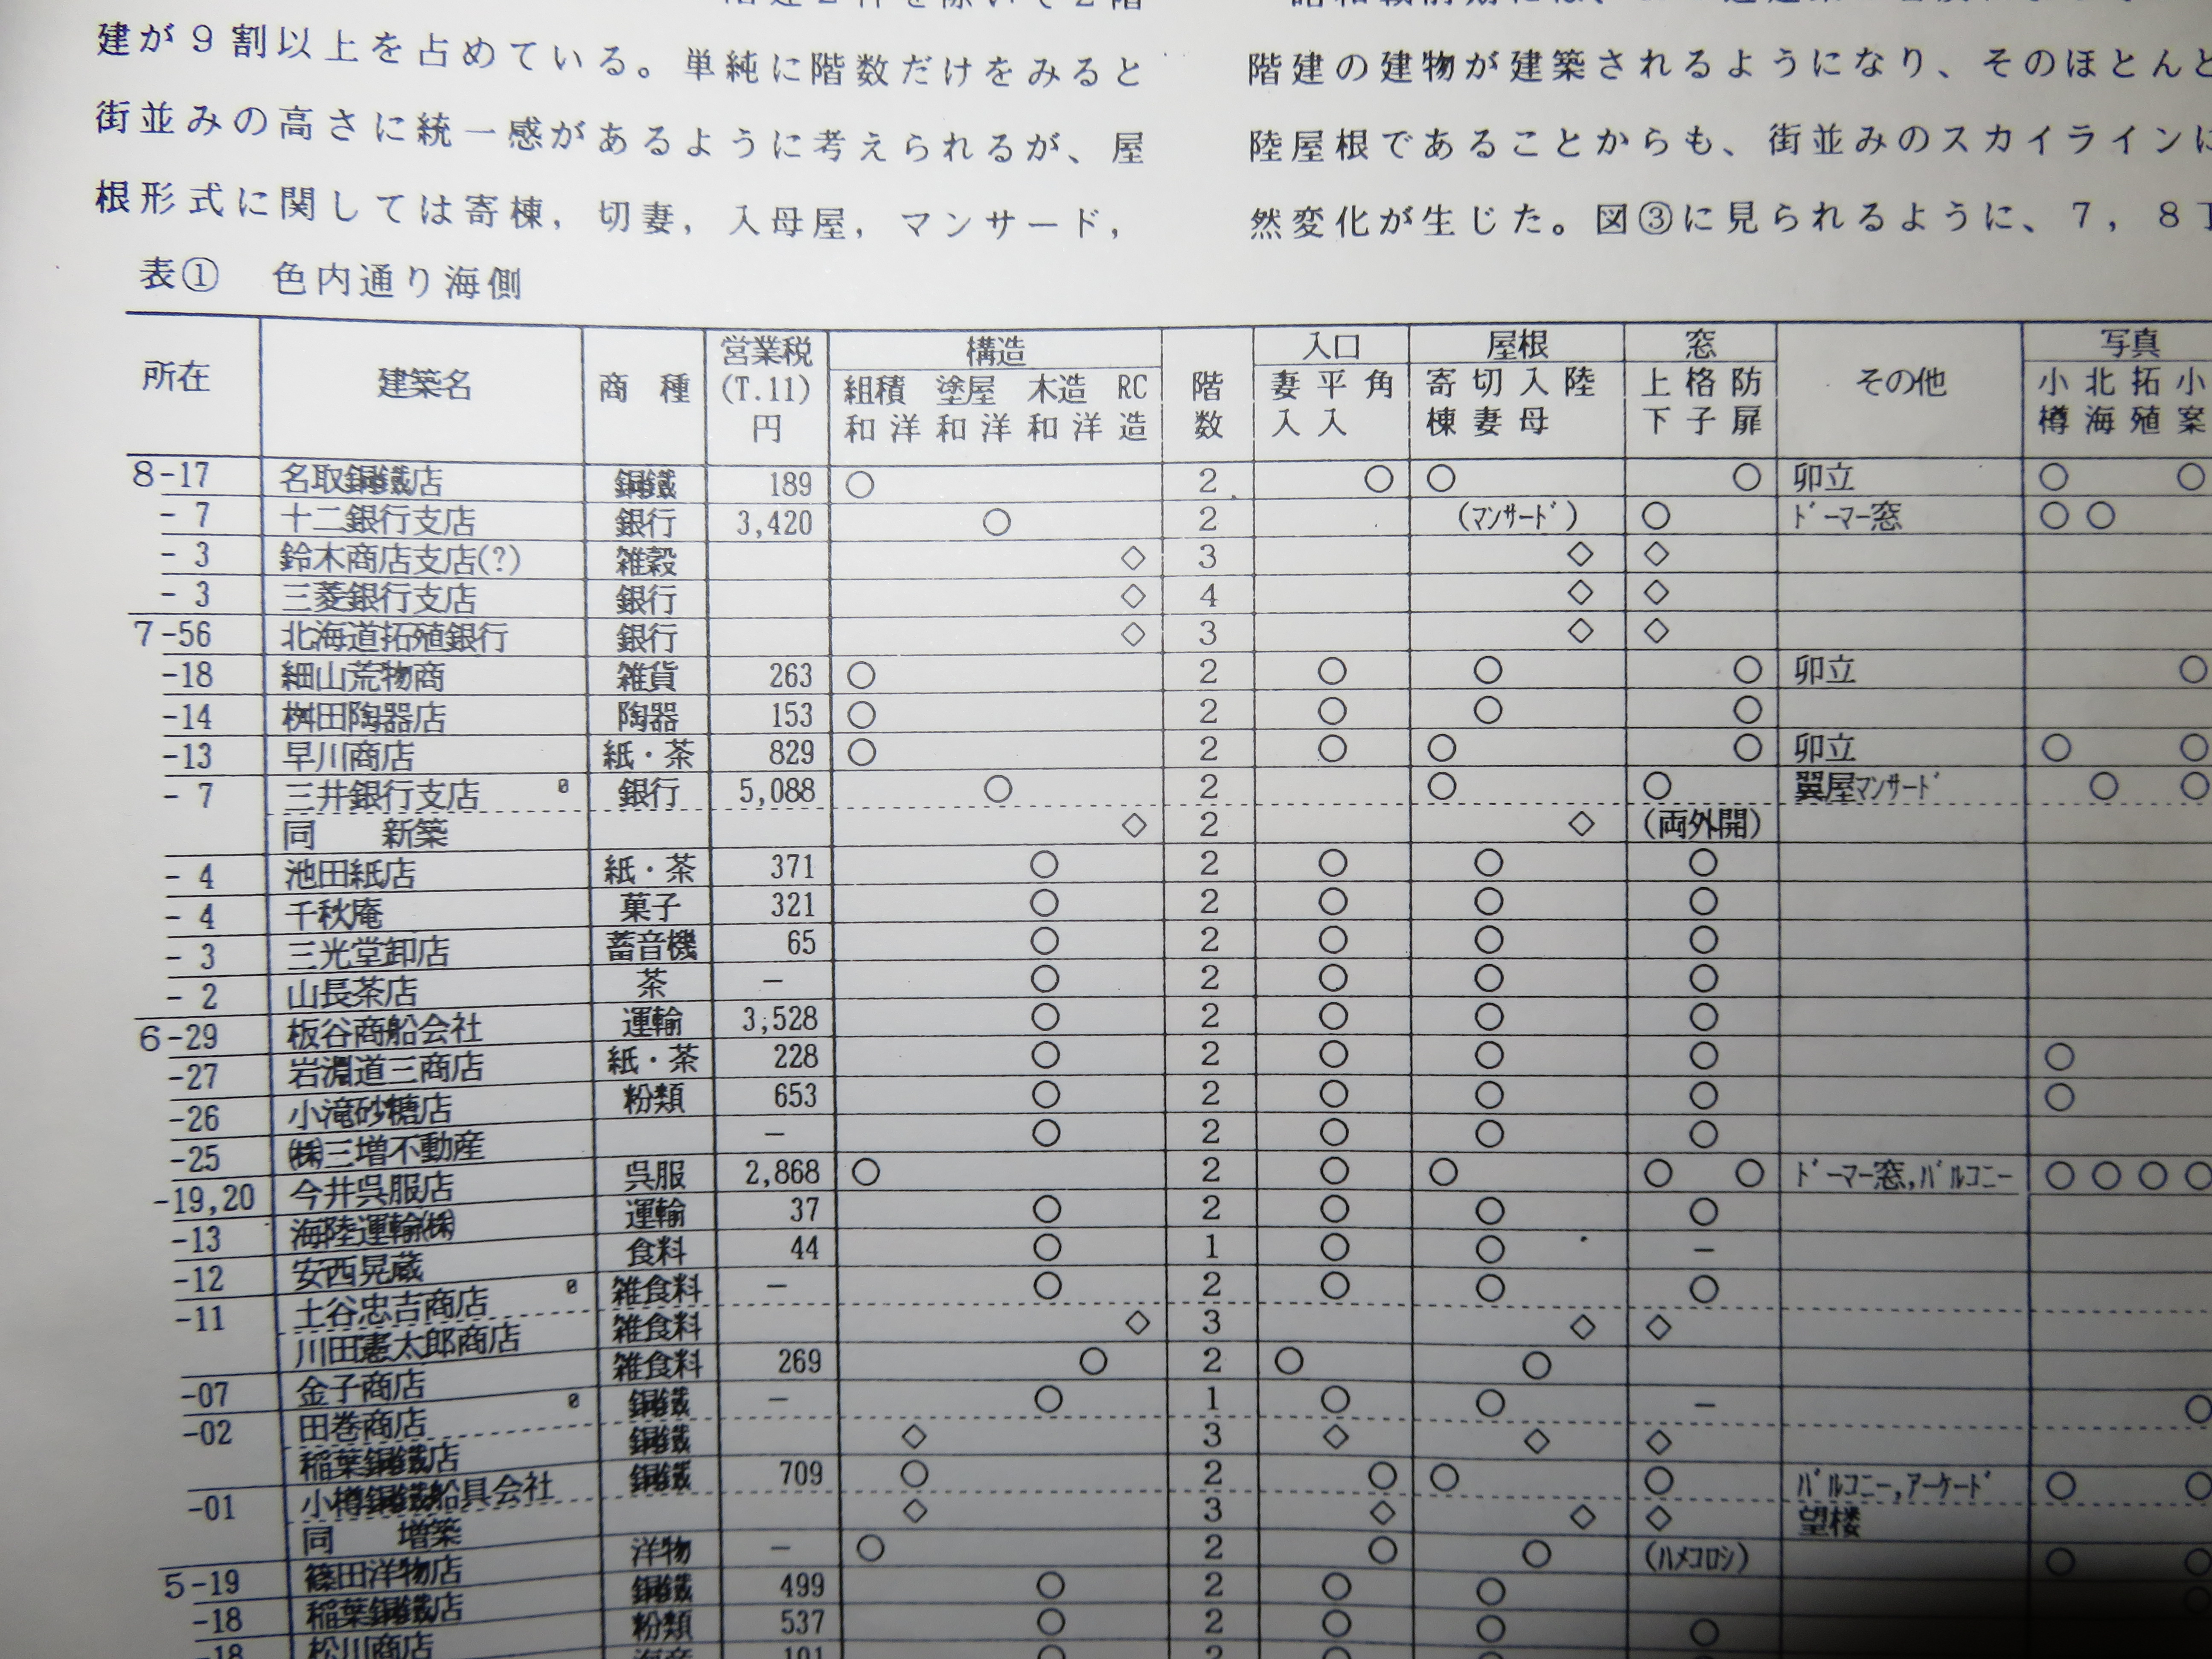 建が９割以上を占めている。単純に階数だけをみると
街並みの高さに統一感があるように考えられるが、屋
根形式に関しては寄棟，切妻，入母屋，マンサード，
階建の建物が建築されるようになり、そのほとんど
陸屋根であることからも、街並みのスカイラインに
然変化が生じた。図③に見られるように、７，８丁
表① 色内通り海側
所在 建築名 商種 営業税(T.11)円 構造 階数 入口 屋根 窓 その他 写真
組積 塗屋 木造 RC造 妻入 平入 角 寄棟 切妻 入母 陸 上下 格子 防扉 小樽 北海 拓殖 小案
和 洋 和 洋 和 洋
8-17 名取銅鐵店 銅鐵 189 ○ 2 ○ ○ ○ 卯立 ○ ○
- 7 十二銀行支店 銀行 3,420 ○ 2 (ﾏﾝｻｰﾄﾞ) ○ ﾄﾞｰﾏｰ窓 ○ ○
- 3 鈴木商店支店(?) 雑穀 ◇ 3 ◇ ◇
- 3 三菱銀行支店 銀行 ◇ 4 ◇ ◇
7-56 北海道拓殖銀行 銀行 ◇ 3 ◇ ◇
-18 細山荒物商 雑貨 263 ○ 2 ○ ○ ○ 卯立 ○
-14 桝田陶器店 陶器 153 ○ 2 ○ ○ ○
-13 早川商店 紙・茶 829 ○ 2 ○ ○ ○ 卯立 ○ ○
- 7 三井銀行支店 銀行 5,088 ○ 2 ○ ○ 翼屋ﾏﾝｻｰﾄﾞ ○ ○
同 新築 ◇ 2 ◇ (両外開)
- 4 池田紙店 紙・茶 371 ○ 2 ○ ○ ○
- 4 千秋庵 菓子 321 ○ 2 ○ ○ ○
- 3 三光堂卸店 蓄音機 65 ○ 2 ○ ○ ○
- 2 山長茶店 茶 － ○ 2 ○ ○ ○
6-29 板谷商船会社 運輸 3,528 ○ 2 ○ ○ ○
-27 岩淵道三商店 紙・茶 228 ○ 2 ○ ○ ○ ○
-26 小滝砂糖店 粉類 653 ○ 2 ○ ○ ○ ○
-25 ㈱三増不動産 － ○ 2 ○ ○ ○
-19,20 今井呉服店 呉服 2,868 ○ 2 ○ ○ ○ ○ ﾄﾞｰﾏｰ窓,ﾊﾞﾙｺﾆｰ ○ ○ ○ ○
-13 海陸運輸㈱ 運輸 37 ○ 2 ○ ○ ○
-12 安西晃蔵 食料 44 ○ 1 ○ ○ －
-11 土谷忠吉商店 雑食料 － ○ 2 ○ ○ ○
川田憲太郎商店 雑食料 ◇ 3 ◇ ◇
-07 金子商店 雑食料 269 ○ 2 ○ ○
-02 田巻商店 銅鐵 － ○ 1 ○ ○ － ○
稲葉銅鐵店 銅鐵 ◇ 3 ◇ ◇ ◇
-01 小樽銅鐵船具会社 銅鐵 709 ○ 2 ○ ○ ○ ﾊﾞﾙｺﾆｰ,ｱｰｹｰﾄﾞ ○ ○
同 増築 ◇ 3 ◇ ◇ ◇ 望楼
5-19 篠田洋物店 洋物 － ○ 2 ○ ○ (ﾊﾒｺﾛｼ) ○ ○
-18 稲葉銅鐵店 銅鐵 499 ○ 2 ○ ○
-18 松川商店 粉類 537 ○ 2 ○ ○ ○